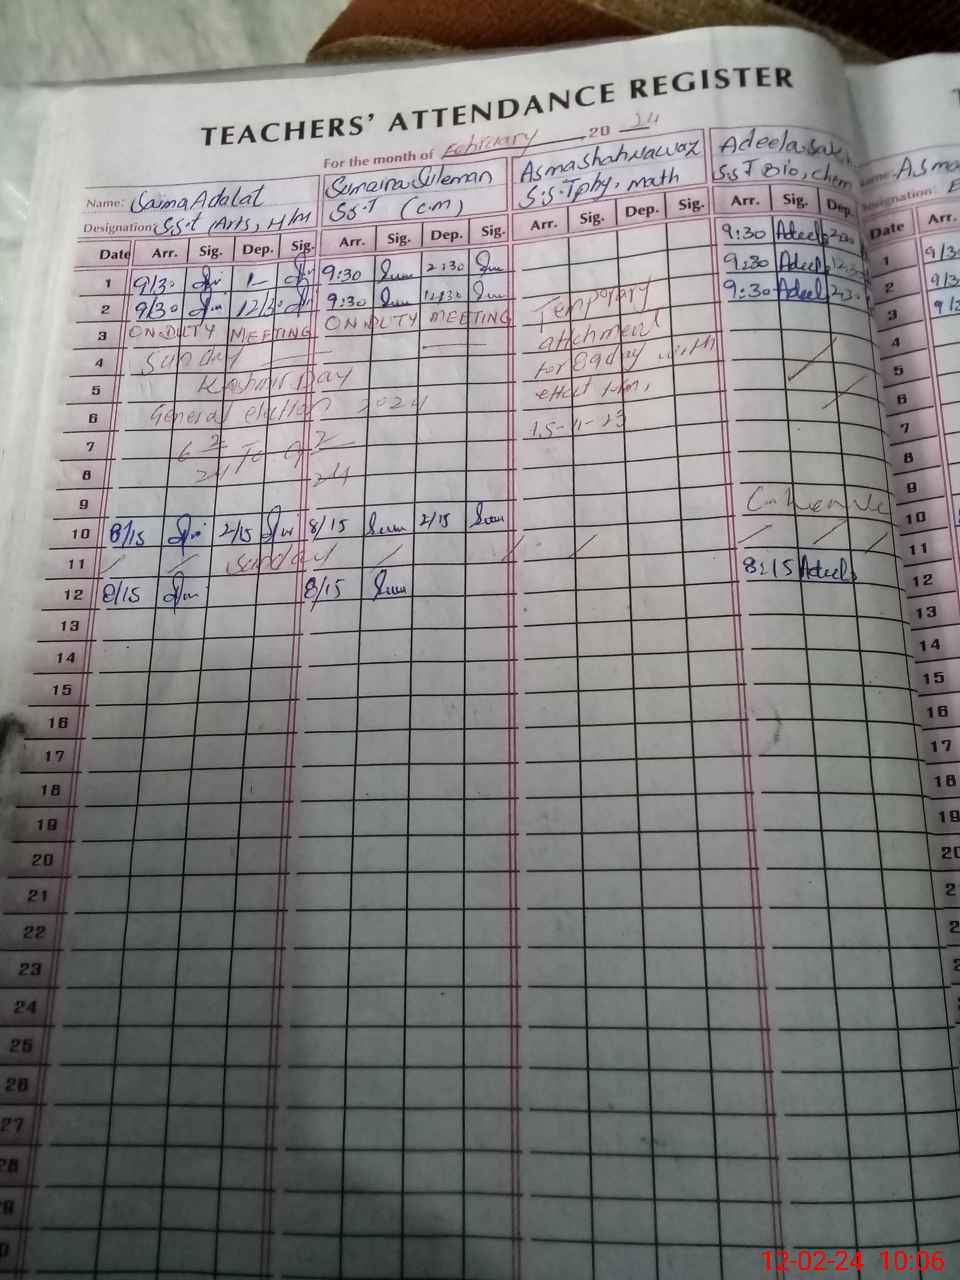 TEACHERS' ATTENDANCE REGISTER
For the month of February 20 24
Name: Saima Adalat
Sumaira Suleman
Asma Shah Nawaz
Adeela
Asma
Designation: S.S.T Arts, H/M
S.S.T (C.M)
S.S.T phy, math
S.S.T Bio, chem
Designation:
Date Arr. Sig. Dep. Sig. Arr. Sig. Dep. Sig. Arr. Sig. Dep. Sig. Arr. Sig. Dep. Date Arr.
1 9/30 9:30 2:30 9:30 Adeela 1 9/30
2 9/30 12/30 9:30 12:30 Temporary 9:30 Adeela 12:30 2
3 ON DUTY MEETING ON DUTY MEETING attchment 9:30 Adeela 2:30 3
4 Sunday for 89 day with 4
5 Kashmir Day effect from, 5
6 General election 2024 15-11-23 6
7 6 2/24 To 9 2/24 7
8 8
9 9
10 8/15 2/15 8/15 2/15 C. Leave 10
11 Sunday 11
12 8/15 8/15 8:15 Adeela 12
13 13
14 14
15 15
16 16
17 17
18 18
19 19
20 20
21
22
23
24
25
26
27
28
12-02-24 10:06